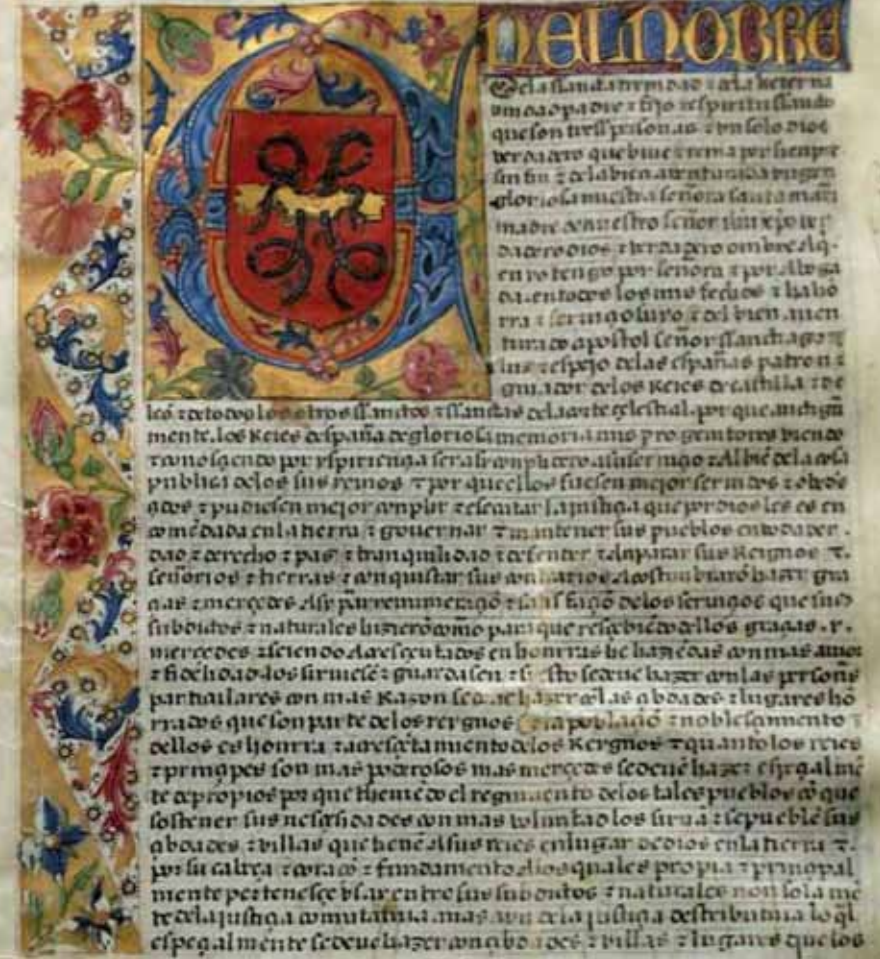 EN EL NOBRE
de la santa trenidad z de la heterna
unidad padre z fijo z espiritu ssando
que son tress personas z vn solo dios
verdadero que biue z reina por sienpre
sin fin z de la bien aventurada virgen
gloriosa nuestra señora santa maria
madre de nuestro señor ihu xpo ver
dadero dios z verdadero ombre a q
en yo tengo por señora z por aboga
da en todos los mis fechos z a ho
rra z seruiçio suyo z del bien auen
turado apostol señor ssanctiago
luz z espejo de las españas patron z
guiador de los Reies de castilla z de
leõ z de todos los otros ssanctos z ssanctas de la corte çelestial por que antigua
mente los Reies despaña de gloriosa memoria mis progenitores biendo
z conosçiendo por yspiriençia ser asi conplidero a su seruiçio z Al biẽ de la cosa
publica de los sus reinos z por que ellos fuesen mejor seruidos z obede
çidos z pudiesen mejor conplir z esecutar la justiçia que por dios les es en
comẽdada en la tierra z gouernar z mantener sus pueblos en toda ver
dad z derecho z paz z tranquilidad z defender z anparar sus Reignos z
señorios z tierras z conquistar sus contrarios Acostunbrarõ hazer gra
çias z merçedes Asy para remuneraçiõ z satisfaçiõ de los seruiçios que sus
subditos z naturales hizierõ como para que resçebiẽdo dellos graçias z
merçedes z seiendo Acresçentados en honrras z haziẽdas con mas amor
z fidelidad los siruiesẽ z guardasen z si esto se deue hazer con las personas
particulares con mas Razon se deue hazer cõ las çibdades z lugares hõ
rrados que son parte de los reignos z la poblaçiõ z noblesçimiento
dellos es honrra z acresçẽtamiento de los Reignos z quanto los reies
z prinçipes son mas poderosos mas merçedes se deuẽ hazer espeçial mẽ
te de propios por que tienẽ de el regimiento de los tales pueblos cõ que
sostener sus nesçesidades con mas voluntad los sirua z se pueblẽ sus
çibdades z villas que tienẽ A sus reies en lugar de dios en la tierra z
por su cabeça z coraçõ z fundamento A los quales propia z prinçipal
mente pertenesçe vsar entre sus subditos z naturales non sola mẽ
te de la justiçia comutatiua mas avn de la justiçia destributiua lo ql
espeçial mente se deue hazer con çibdades z villas z lugares que los